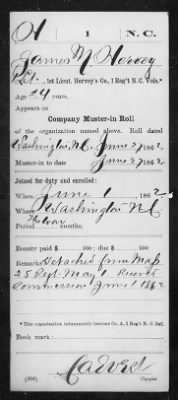 H 1 N.C.
M Hervey
, 1st Lieut. Hervey's Co., 1 Reg't N.C. Vols.*
Age 24 years.
Appears on
Company Muster-in Roll
of the organization named above. Roll dated
Washington, N.C. June 27, 1862.
Muster-in to date June 27, 1862.
Joined for duty and enrolled:
When June 1, 1862
Where Washington N.C.
Period The War months.
Bounty paid $ 100; due $ 100
Remarks: Detached from Mass
25 Regt. May 1
June 1 1862
*This organization subsequently became Co. A, 1 Reg't N.C. Inf.
Book mark:
Copyist.